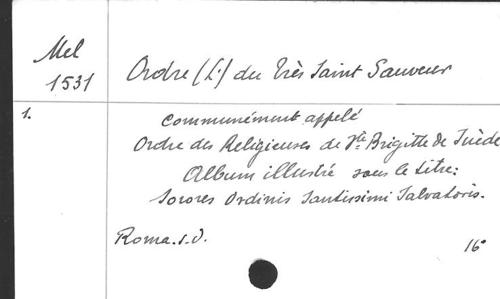 Mel
1531
Ordre (L') du Très Saint Sauveur
1.
Communément appelé
Ordre des Religieuses de Ste Brigitte de Suède
Album illustré sous le titre:
Sorores Ordinis Sanctissimi Salvatoris.
Roma. s.d.
16°